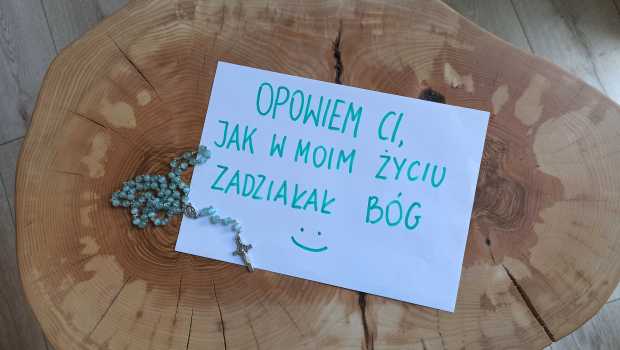 OPOWIEM CI,
JAK W MOIM ŻYCIU
ZADZIAŁAŁ BÓG